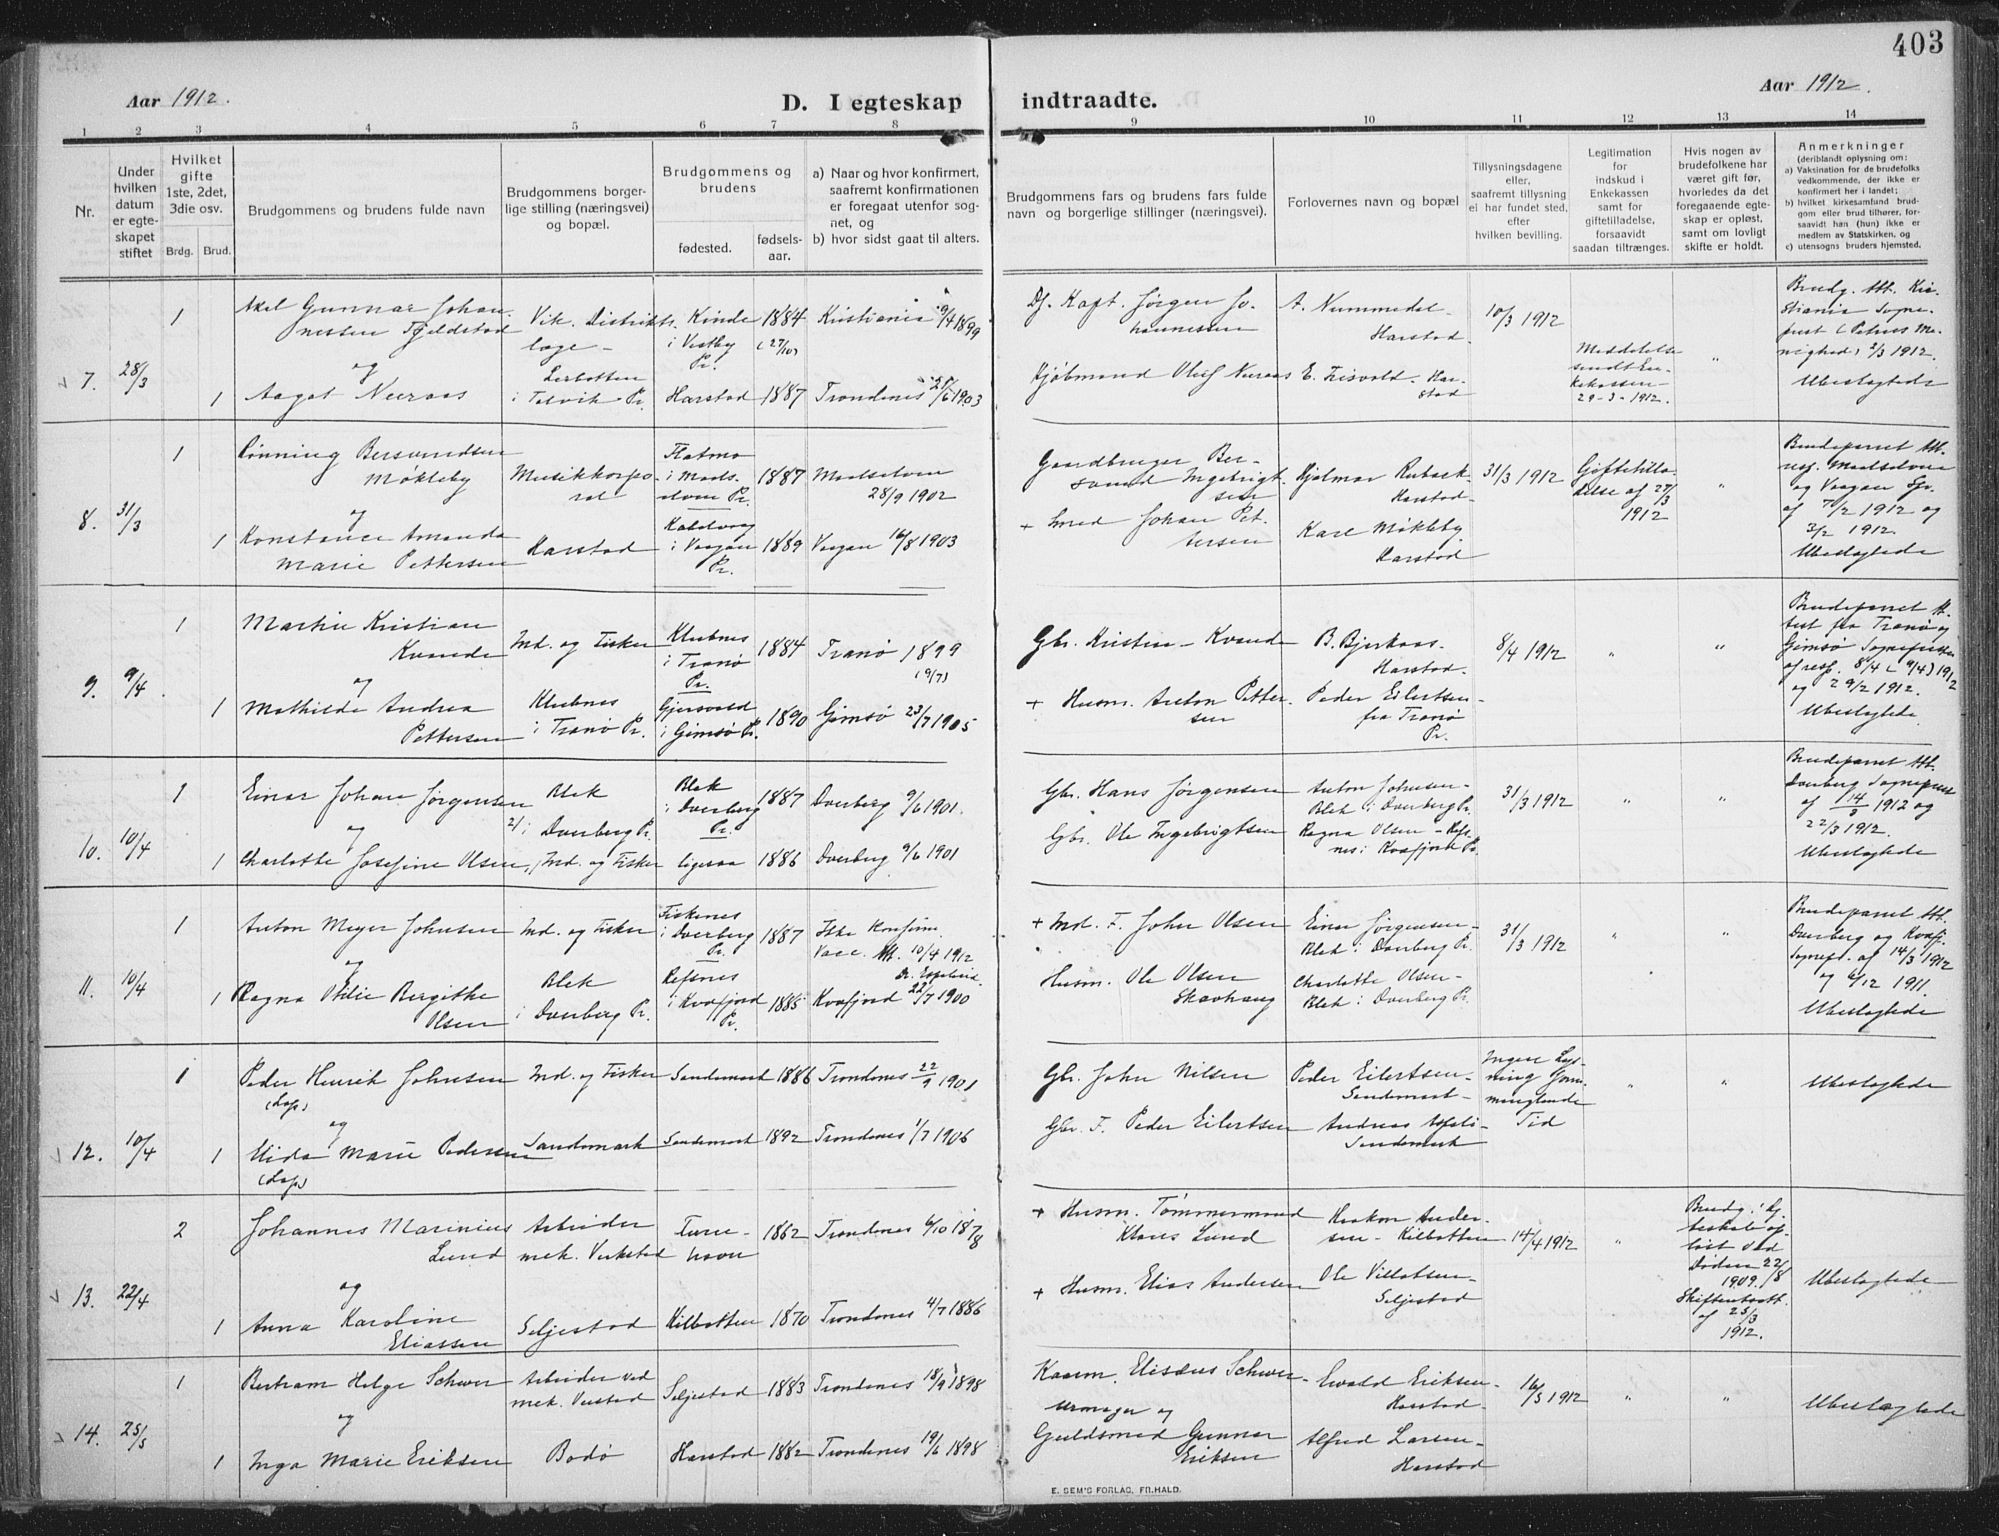 403
Aar 1912.
D. I egteskap indtraadte.
Aar 1912.
1 2 3 4 5 6 7 8 9 10 11 12 13 14
Nr.
Under hvilken datum er egteskapet stiftet
Hvilket gifte 1ste, 2det, 3die osv.
Brdg. Brud.
Brudgommens og brudens fulde navn
Brudgommens borgerlige stilling (næringsvei) og bopæl.
Brudgommens og brudens
fødested.
fødselsaar.
a) Naar og hvor konfirmert, saafremt konfirmationen er foregaat utenfor sognet, og
b) hvor sidst gaat til alters.
Brudgommens fars og brudens fars fulde navn og borgerlige stillinger (næringsvei).
Forlovernes navn og bopæl
Tillysningsdagene eller, saafremt tillysning ei har fundet sted, efter hvilken bevilling.
Legitimation for indskud i Enkekassen samt for giftetilladelse, forsaavidt saadan tiltrænges.
Hvis nogen av brudefolkene har været gift før, hvorledes da det foregaaende egteskap er opløst, samt om lovligt skifte er holdt.
Anmerkninger
(deriblandt oplysning om:
a) Vaksination for de brudefolks vedkommende, der ikke er konfirmert her i landet;
b) hvilket kirkesamfund brudgom eller brud tilhører, forsaavidt han (hun) ikke er medlem av Statskirken, og
c) utensogns bruders hjemsted.
7. 28/3
1
Axel Gunnar Johannessen Fjeldstad
og
1
Aagot Nuraas
Vik. Distriktslæge
i Talvik Pr.
i Vestby Pr.
1884 (27/10)
Kristiania 9/4 1899
Harstad 1887
Trondenes 21/6 1903
Df. Kapt. Jørgen Johannessen
Kjøbmand Oluf Nuraas
A. Nummedal
Harstad.
E. Frisvold. Harstad
10/3 1912
Meddelelse sendt Enkekassen
29-3-1912.
"
Brudg. Att. Kristiania Sogneprest (Petrus Menighed) 2/3 1912.
Ubeslægtede
8. 31/3
1
Rønning Bersvendsen
Møkleby
og
1
Konstance Amanda
Marie Pettersen
Musikkorporal
Harstad
i Maalselven Pr.
1887
Maalselven
28/9 1902
Kabelvaag
i Vaagan Pr.
1889
Vaagan 16/8 1903
Gaardbruger Bersvend Ingebrigtsen
+ Smed Johan Pettersen
Hjalmar Rubach
Harstad
Karl Møkleby
Harstad
31/3 1912
Giftetilladelse af 27/3 1912
"
Brudeparret Att. resp. Maalselven og Vaagan Spr. af 7/2 1912 og 3/2 1912.
Ubeslægtede
9. 9/4
1
Martin Kristian
Kvande
og
1
Mathilde Andrea
Pettersen
Ind. og Fisker
Klubnes
i Tranø Pr.
Klubnes
i Tranø Pr.
1884
Tranø 1899
(9/7)
i Gimsø Pr.
1890
Gimsø 23/7 1905
Gbr. Kristen Kvande
+ Husm. Anton Pettersen
B. Bjerkaas
Harstad.
Peder Eilertsen
fra Tranø Pr.
8/4 1912
"
"
Brudeparret Attest fra Tranø og Gimsø Sognepræster af resp. 8/4 (9/4) 1912 og 29/2 1912.
Ubeslægtede
10. 10/4
1
Einar Johan Jørgensen
og
1
Charlotte Josefine Olsen
Blek
2/ i Dverberg Pr.
1/ Ind. og Fisker
Blek
i Dverberg Pr.
1887
Dverberg 9/6 1901.
ligesaa 1886
Dverberg 9/6 1901
Gbr. Hans Jørgensen
Gbr. Ole Ingebrigtsen
Anton Johnsen
Blek i Dverberg Pr.
Ragna Olsen - Refsnes i Kvæfjord Pr.
31/3 1912
"
"
Brudeparret Att. Dverberg Sogneprest af 14/3 1912 og 22/3 1912.
Ubeslægtede
11. 10/4
1
Anton Meyer Johnsen
og
1
Ragna Otilie Bergithe
Olsen
Ind. og Fisker
Blek
i Dverberg Pr.
Fiskenes
i Dverberg Pr.
1887
Ikke Konfirm.
Vacc. Att. 10/4 1912
Refsnes
i Kvæfjord Pr.
1885
Kvæfjord 22/7 1900
+ Ind. F. John Olsen
Husm. Ole Olsen
Skavhaug
Einar Jørgensen
Blek i Dverberg Pr.
Charlotte Olsen
Blek i Dverberg Pr.
31/3 1912
"
"
Brudeparret Att. Dverberg og Kvæfj. Sognepr. af 14/3 1912 og 6/12 1911.
Ubeslægtede
12. 10/4
1
Peder Henrik Johnsen
(Lap)
og
1
Marie Pedersen
(Lap)
Ind. og Fisker
Sandemark
Sandemark 1886
Trondenes 22/9 1901
Sandemark 1892
Trondenes 1/7 1906
Gbr. John Nilsen
Gbr. F. Peder Eilertsen
Peder Eilertsen
Sandemark
Andreas
Sandemark
Ingen Lysning Tid
"
"
Ubeslægtede
13. 22/4
2
Johannes Marinius
Lund
og
1
Anna Karoline
Eliassen
Arbeider
mek. Verksted
Seljestad
1862
Trondenes 6/10 1878
Kilbotten 1870
Trondenes 4/7 1886
+ Husm. Tømmermand
Klaus Lund
+ Husm. Elias Andersen
Haakon Andersen - Kilbotten
Ole Villatsen
Seljestad
14/4 1912
"
Brudg.s Egteskab opløst ved Døden 22/8 1909.
Skifteattest af 25/3 1912.
Ubeslægtede
14. 25/5
1
Bertram Helge Schwer
og
1
Inga Marie Eriksen
Arbeider ved
mek. Verksted
Bodø
Seljestad 1883
Trondenes 18/9 1898
Harstad 1882
Trondenes 19/6 1898
Kaasm. Elisæus Schwer
Urmager og
Guldsmed Gunnar
Eriksen
Ewald Eriksen
Harstad
Alfred Larsen
Harstad
16/5 1912
"
"
Ubeslægtede
E. SEM'S FORLAG, FR.HALD.